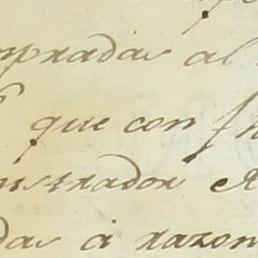 mpradas al
que con fr
nistrador
das á razon